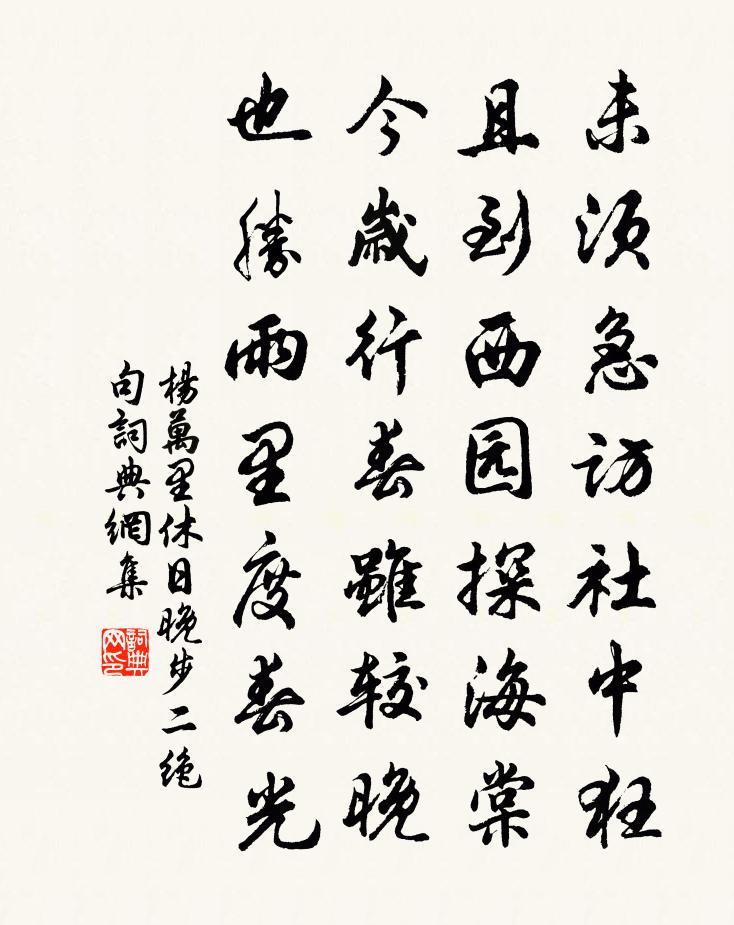 未須急訪社中狂
且到西园探海棠
今歲行春雖較晚
也勝雨里度春光
楊萬里休日晚步二絶
句詞典網集
詞典
网印